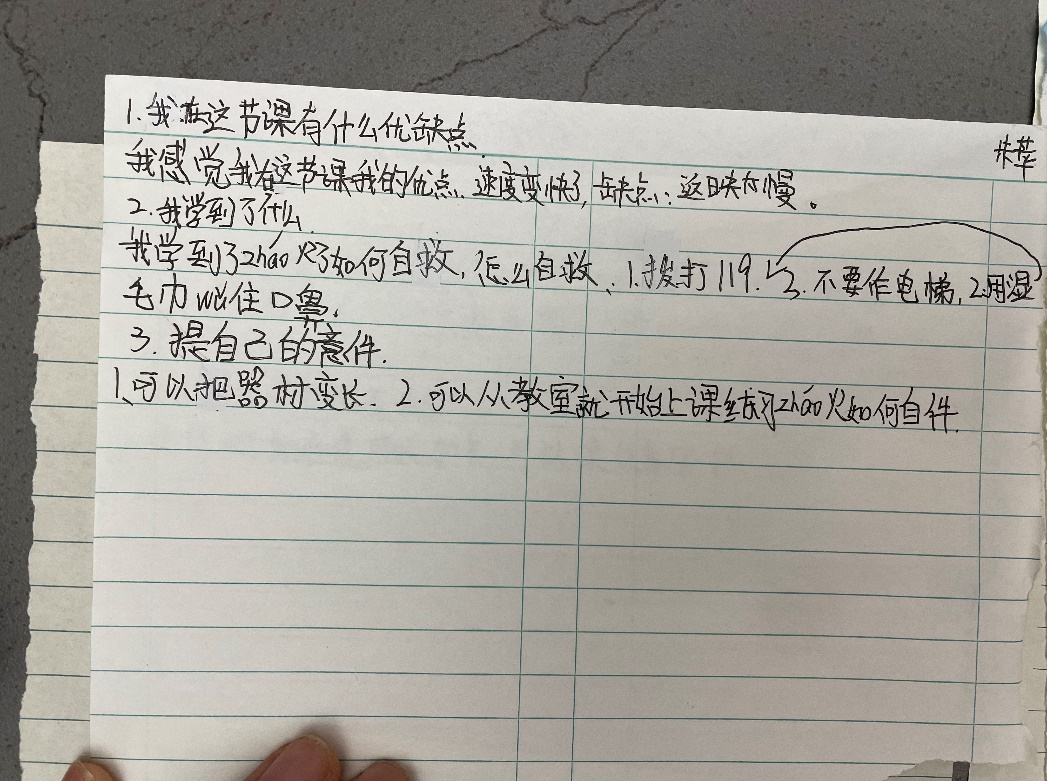 1. 我在这节课有什么优缺点.
朱苹
我感觉我在这节课我的优点.速度变快了,缺点:返日夬有慢。
2.我学到了什么
我学到了zháo火了如何自救,怎么自救、1.拨打119. 3.不要作电梯,2.用湿
毛巾wu住口鼻.
3.提自己的意件.
1、可以把器材变长. 2.可以从教室就开始上课练习zháo火如何自件.